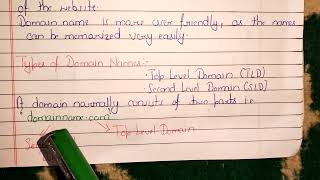 of the website.
Domain name is more user friendly, as the names
can be memorized very easily.
Types of Domain Names:-
· Top Level Domain (TLD)
· Second Level Domain (SLD)
A domain normally consists of two parts i.e
domainname.com
Top Level Domain
Se